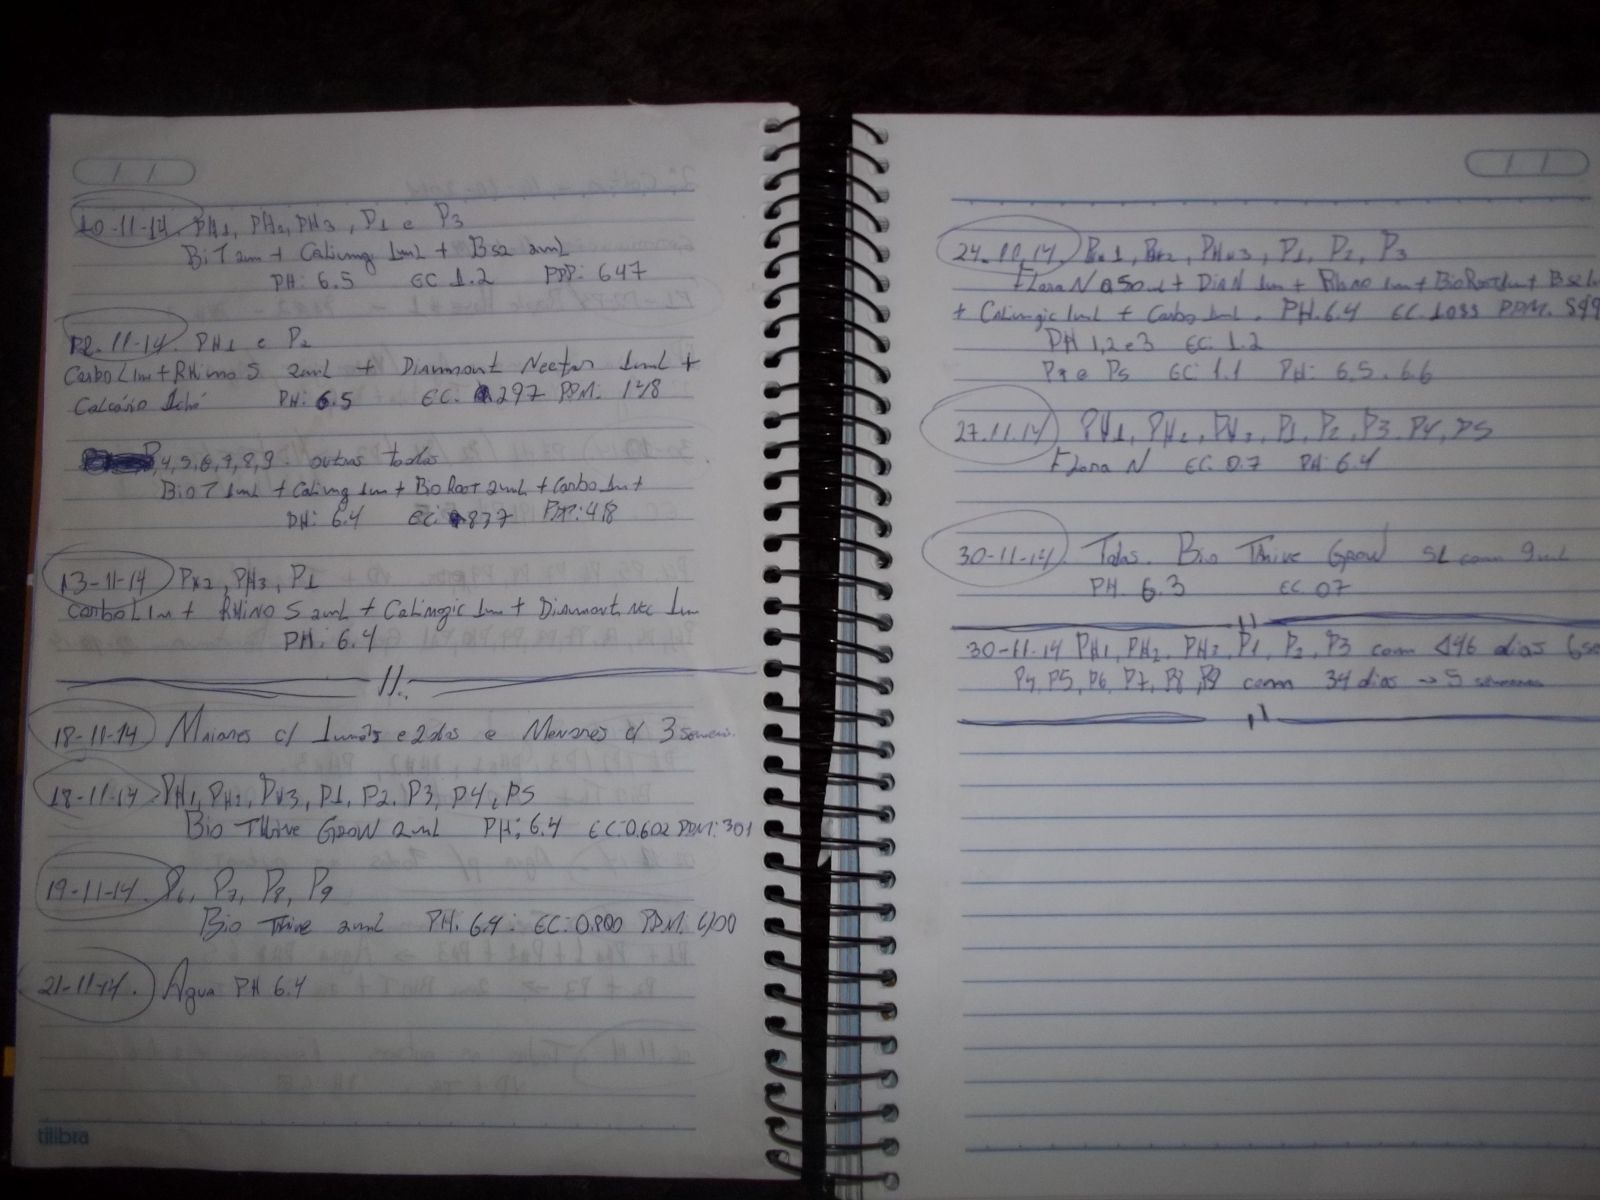 10-11-14. PH1, PH2, PH3, P1 e P3
BioT 2ml + Calimg 1ml + Bs2 2ml
PH: 6.5 EC 1.2 PPP: 647
12-11-14. PH1 e P2
Carbo L 1m + RHino S 2ml + Diammont Nectar 1ml +
Calcário 1 PH: 6.5 EC. 297 PPM. 148
P,4,5,6,7,8,9. outras todas
Bio T 1ml + Calimg 1m + Bio Root 2ml + Carbo 1m +
PH: 6.4 EC 837 PPP: 418
13-11-14 PH2, PH3, P1
Carbo L 1m + RHINO S 2ml + Calimgic 1m + Diammont nec 1m
PH. 6.4
18-11-14 Maiores c/ 1 mês e 2 dias e Menores c/ 3
18-11-14 PH1, PH2, PH3, P1, P2, P3, P4, P5
Bio THive Grow 2ml PH: 6.4 EC: 0.602 PPM: 301
19-11-14. P6, P7, P8, P9
Bio THive 2ml PH: 6.4: EC: 0.800 PPM: 400
21-11-14. Água PH 6.4
tilibra
24.11.14. PH1, PH2, PH3, P1, P2, P3
Flora N 050ml + DiaN 1m + Rhino 1m + BioRoot 1m + Bs2
+ Calimgic 1ml + Carbo 1ml. PH. 6.4 EC. 1033 PPM.
PH 1,2 e 3 EC: 1.2
e P5 EC: 1.1 PH: 6.5. 6.6
27.11.14 PH1, PH2, PH3, P1, P2, P3, P4, P5
Flora N EC: 0.7 PH: 6.4
30-11-14. Todas. Bio Thrive Grow 5L com 9ml
PH. 6.3 EC 07
30-11-14 PH1, PH2, PH3, P1, P2, P3 com 46 dias
P4, P5, P6, P7, P8, P9 com 34 dias → 5 semanas